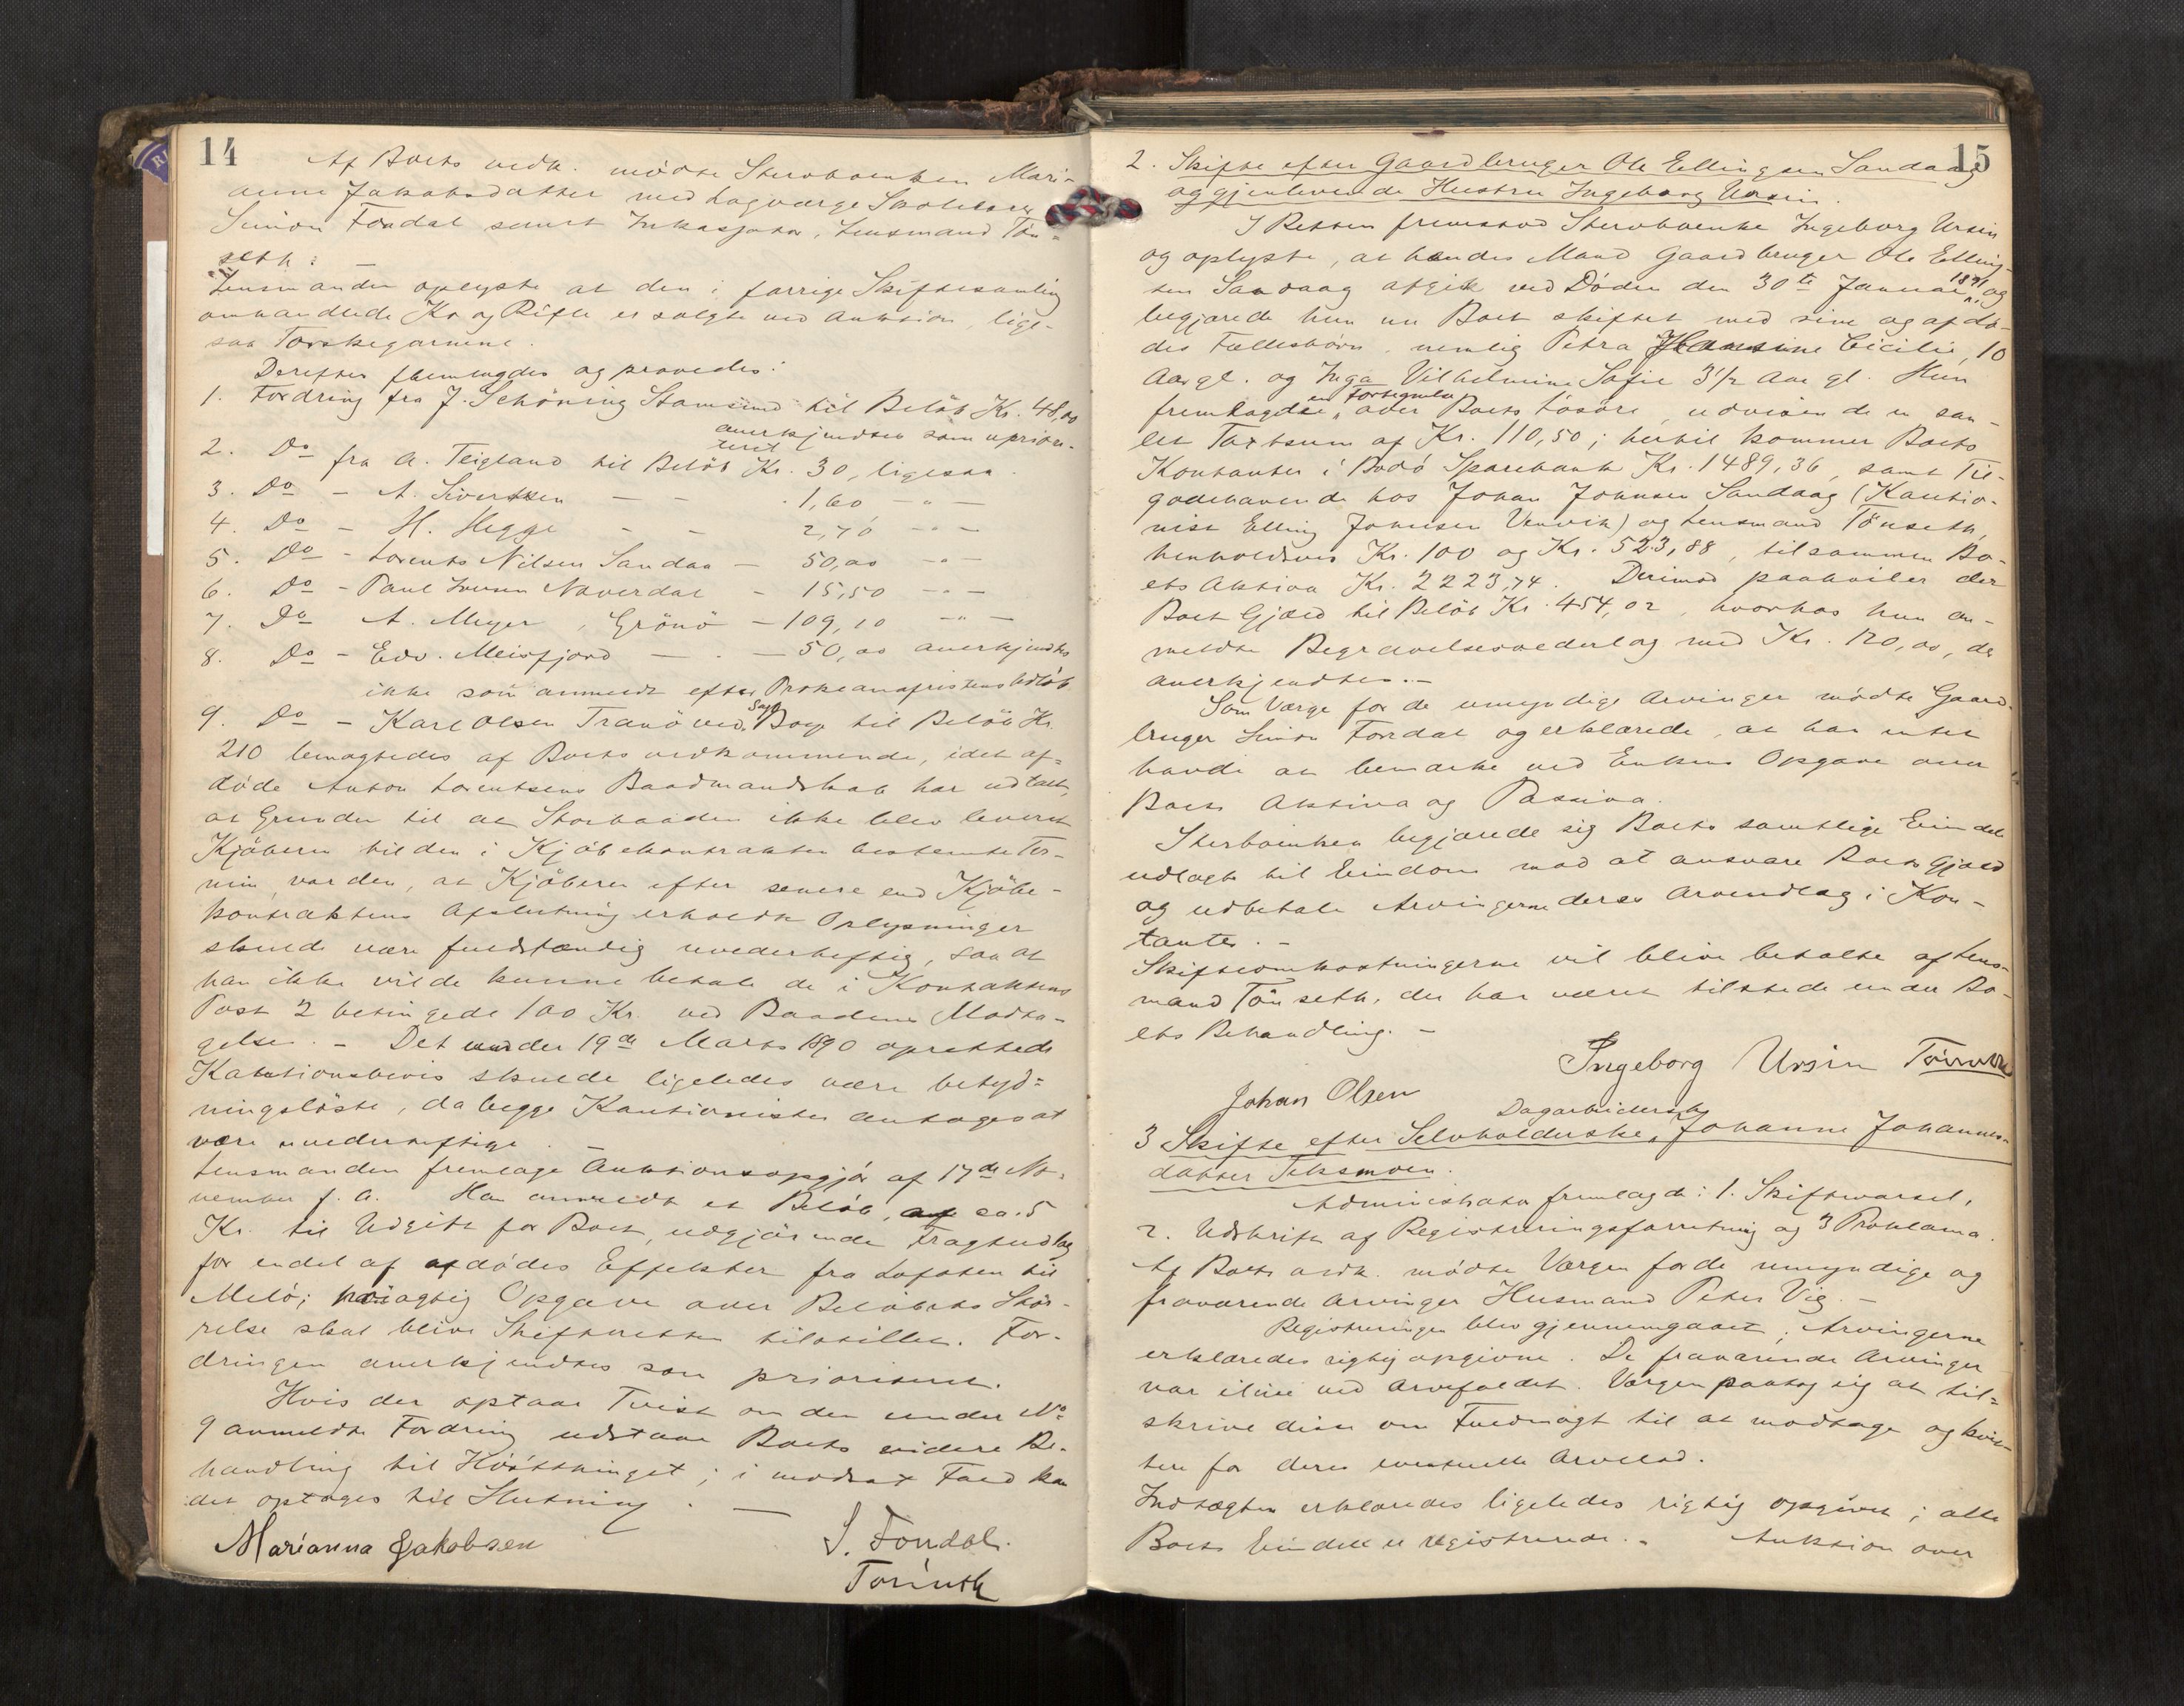 14
Af Boets vedk. mødte Sterboenken Mari-
anne Jakobsdatter med Lagværge
Simon Fondal samt Inkasjator, Lensmand Tön-
seth: —
Lensmanden oplyste at den i forrige Skiftesamling
omhandlede Ko og Rifle er solgte ved Auktion, lige-
saa Torskegarnene.
Derefter fremlagdes og prøvedes:
1. Fordring fra J. Schöning Stamsund til Beløb Kr. 48,00
anerkjendtes som uprior-
teret
2. Do fra A. Teigland til Beløb Kr. 30, ligesaa.
3. Do — A. Sivertsen — — 1,60 — " —
4. Do — H. Hegge — — 2,70 — " —
5. Do — Lorents Nilsen Sandaa — 50,00 — " —
6. Do — Paul Naverdal — 15,50 — " —
7. Do A. Meyer, Grönö — 109,10 — " —
8. Do — Edv. Meisfjord — — 50,00 anerkjendtes
ikke som anmeldt efter Proklamafristens Udløb
9. Do — Karl Olsen Tranö ved Sagf. Boye til Beløb Kr.
210 benægtedes af Boets vedkommende, idet af-
døde Anton Lorentsens Baadmandskab har udtalt,
at Grunden til at Storbaaden ikke blev leveret
Kjøberen til den i Kjøbekontrakten bestemte Ter-
min, var den, at Kjøberen efter senere end Kjøbe-
kontraktens Afslutning erholdte Oplysninger
skulde være fuldstændig uvederheftig, saa at
han ikke vilde kunne betale de i Kontraktens
Post 2 betingede 100 Kr. ved Baadens Modta-
gelse. — Det under 19de Marts 1890 oprettede
Kautionsbevis skulde ligeledes være betyd-
ningsløst, da begge Kautionister antages at
være uvederheftige. —
Lensmanden fremlagde Auktionsopgjør af 17de No-
vember f. A. Han anmeldte et Beløb, ca. 5
Kr. til Udgift for Boet, udgjørende Fragtudlæg
for endel af afdødes Effekter fra Lofoten til
Melø; nøiagtig Opgave over Beløbets Stør-
relse skal blive Skifteretten tilstillet. For-
dringen anerkjendtes som prioriteret.
Hvis der opstaar Tvist om den under No
9 anmeldte Fordring udstaar Boets videre Be-
handling til Høstthinget; i modsat Fald kan
det optages til Slutning. —
Marianna Jakobsen
S. Fondal.
Tönseth
15
2. Skifte efter Gaardbruger Ole Ellingsen Sandaag
og gjenlevende Hustru Ingeborg Ursin.
I Retten fremstod Sterboenke Ingeborg Ursin
og oplyste, at hendes Mand Gaardbruger Ole Elling-
sen Sandaag afgik ved Døden den 30te Januar 1891, og
begjærede hun nu Boet skiftet med sine og afdø-
des Fællesbørn, nemlig Petra Hansine Cicilie, 10
Aar gl. og Inga Vilhelmine Sofie 3½ Aar gl. Hun
fremlagde en Fortegnelse over Boets Løsøre, udvisende en sam-
let Taxtsum af Kr. 110,50; hertil kommer Boets
Kontanter i Bodø Sparebank Kr. 1489,36, samt Til-
godehavende hos Johan Johnsen Sandaag (Kautio-
nist Elling Johnsen Venvik) og Lensmand Tönseth,
henholdsvis Kr. 100 og Kr. 523,88, tilsammen Bo-
ets Aktiva Kr. 2223,74. Derimod paahviler der
Boet Gjæld til Beløb Kr. 454,02, hvorhos hun an-
meldte Begravelsesvederlag med Kr. 120,00, der
anerkjendtes. —
Som Værge for de umyndige Arvinger mødte Gaard-
bruger Simon Fondal og erklærede, at han intet
havde at bemærke ved Enkens Opgave over
Boets Aktiva og Passiva.
Sterboenken begjærede sig Boets samtlige Eiendele
udlagte til Eiendom mod at ansvare Boets Gjæld
og udbetale Arvingerne deres Arvendlæg i Kon-
tanter. —
Skifteomkostningerne vil blive betalte af Lens-
mand Tönseth, der har været tilstede under Bo-
ets Behandling. —
Ingeborg Ursin Tönseth
Johan Olsen
3 Skifte efter Selvholderske, Dagarbeiderske Johanne Johannes-
datter Teksmoen.
Administrator fremlagde: 1. Skiftevarsel,
2. Udskrift af Registreringsforretning og 3 Proklama.
Af Boets vedk. mødte Værgen for de umyndige og
fraværende Arvinger Husmand Peter Vig. —
Registreringen blev gjennemgaaet; Arvingerne
erklæredes rigtig opgivne. De fraværende Arvinger
var ilive ved Arvefaldet. Værgen paatog sig at til-
skrive disse om Fuldmagt til at modtage og kvit-
tere for deres eventuelle Arvelod.
Indtægten erklæredes ligeledes rigtig opgivet; alle
Boets Eiendele er registrerede. — Auktion over